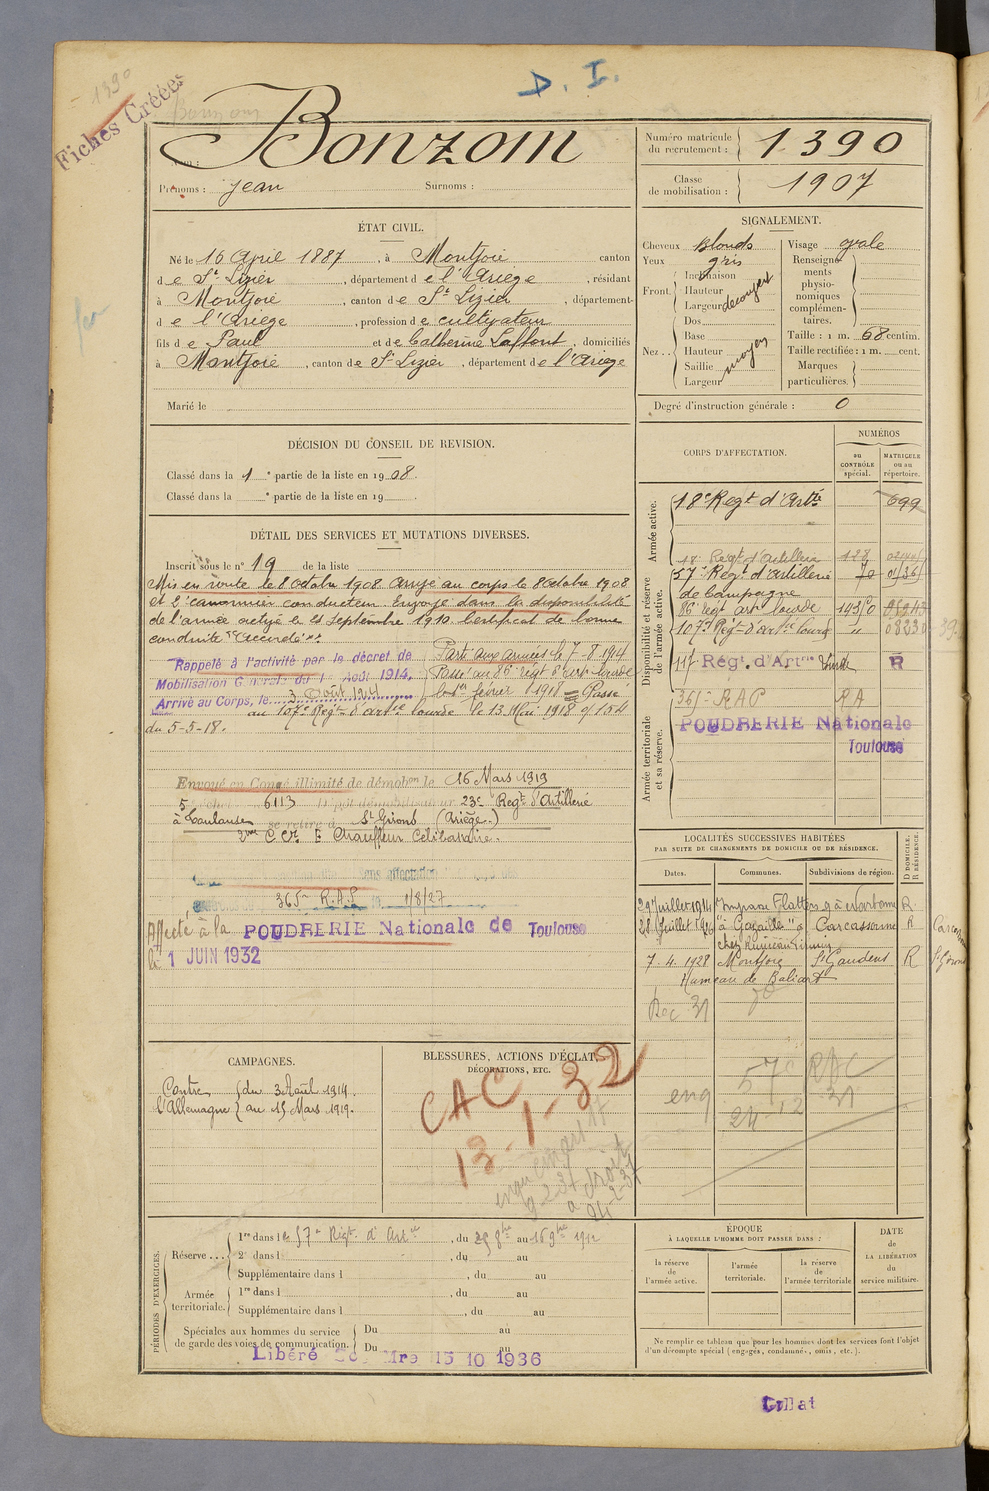 1390
Fiches Créées
D. I.
Bonzom
Nom :
Prénoms : Jean Surnoms :
Numéro matricule du recrutement : 1390
Classe de mobilisation : 1907
ÉTAT CIVIL.
Né le 16 April 1887, à Montjoie canton
de St Lizier, département de l'Ariège, résidant
à Montjoie, canton de St Lizier, département
de l'Ariège, profession de cultivateur
fils de Paul et de Catherine Laffont, domiciliés
à Montjoie, canton de St Lizier, département de l'Ariège
Marié le
SIGNALEMENT.
Cheveux blonds
Yeux gris
Front. Inclinaison
Hauteur
Largeur découvert
Nez.. Dos
Base
Hauteur moyen
Saillie
Largeur
Visage ovale
Renseignements physionomiques complémentaires.
Taille : 1 m. 68 centim.
Taille rectifiée : 1 m. cent.
Marques particulières.
Degré d'instruction générale : 0
DÉCISION DU CONSEIL DE REVISION.
Classé dans la 1e partie de la liste en 1908.
Classé dans la e partie de la liste en 19 .
DÉTAIL DES SERVICES ET MUTATIONS DIVERSES.
Inscrit sous le n° 19 de la liste
Mis en route le 8 Octobre 1908. Arrivé au corps le 8 Octobre 1908
et 2e canonnier conducteur. Envoyé dans la disponibilité
de l'armée active le 25 Septembre 1910. Certificat de bonne
conduite "Accordé".
Rappelé à l'activité par le décret de
Mobilisation Générale du 1er Août 1914.
Arrivé au Corps, le 3 Août 1914
Parti aux armées le 7-8-1914
Passé au 86e régt d'art. lourde
le 1er février 1918 = Passé
au 107e Régt d'artie lourde le 13 Mai 1918 o/ 154
du 5-5-18.
Envoyé en Congé illimité de démobon le 16 Mars 1919
5 échel 6113 Dépôt démobilisateur 23e Regt d'Artillerie
à Toulouse se retire à St Girons (Ariège)
2me C.Ct. E Chauffeur Célibataire.
sans affectation
365e R.A.P. le 1/8/27
Affecté à la POUDRERIE Nationale de Toulouse
le 1 JUIN 1932
CORPS D'AFFECTATION.
NUMÉROS
au CONTRÔLE spécial.
MATRICULE ou au répertoire.
Armée active.
18e Regt d'Artie 699
18e Regt d'Artillerie 128
Disponibilité et réserve de l'armée active.
57e Regt d'Artillerie 70
de Campagne
86e régt art lourde
107e Régt d'artie lourde "
117 Régt. d'Artie lourde R
Armée territoriale et sa réserve.
365e RAP RA
POUDRERIE Nationale
Toulouse
LOCALITÉS SUCCESSIVES HABITÉES
PAR SUITE DE CHANGEMENTS DE DOMICILE OU DE RÉSIDENCE.
Dates.
Communes.
Subdivisions de région.
D DOMICILE; R RÉSIDENCE.
29 Juillet 1914 Impasse Flatters 9 à Narbonne R.
28 Juillet 1926 "à Gazailles" à Carcassonne R
7. 4. 1928 Montjoie St Gaudens R
Hameau de Baliart
Rec 31
57e RAC
eng 24-12 31
CAMPAGNES.
Contre l'Allemagne
du 3 Août 1914.
au 15 Mars 1919.
BLESSURES, ACTIONS D'ÉCLAT,
DÉCORATIONS, ETC.
CAC
13-1-32
a droit
24-2-37
PÉRIODES D'EXERCICES.
Réserve... 1re dans le 57e Régt d'Artie, du 25 8bre au 16 9bre 1912
2e dans l , du au
Supplémentaire dans l , du au
Armée territoriale. 1re dans l , du au
Supplémentaire dans l , du au
Spéciales aux hommes du service de garde des voies de communication. Du au
Du au
Libéré 15 10 1936
ÉPOQUE
À LAQUELLE L'HOMME DOIT PASSER DANS :
la réserve de l'armée active.
l'armée territoriale.
la réserve de l'armée territoriale
DATE de LA LIBÉRATION du service militaire.
Ne remplir ce tableau que pour les hommes dont les services font l'objet
d'un décompte spécial (engagés, condamnés, omis, etc.).
Collat